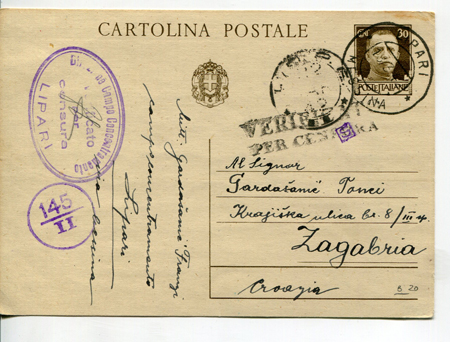 CARTOLINA POSTALE
30
POSTE ITALIANE
LIPARI
Campo Concentramento
censura
LIPARI
145
II
VERIFICATO
PER CENSURA
Mitt. Gardašanić Frangi
campo concentramento
Lipari
Messina
Al Signor
Gardašanić Tonči
Krajiška ulica br. 8/III
Zagabria
Croazia
B 20